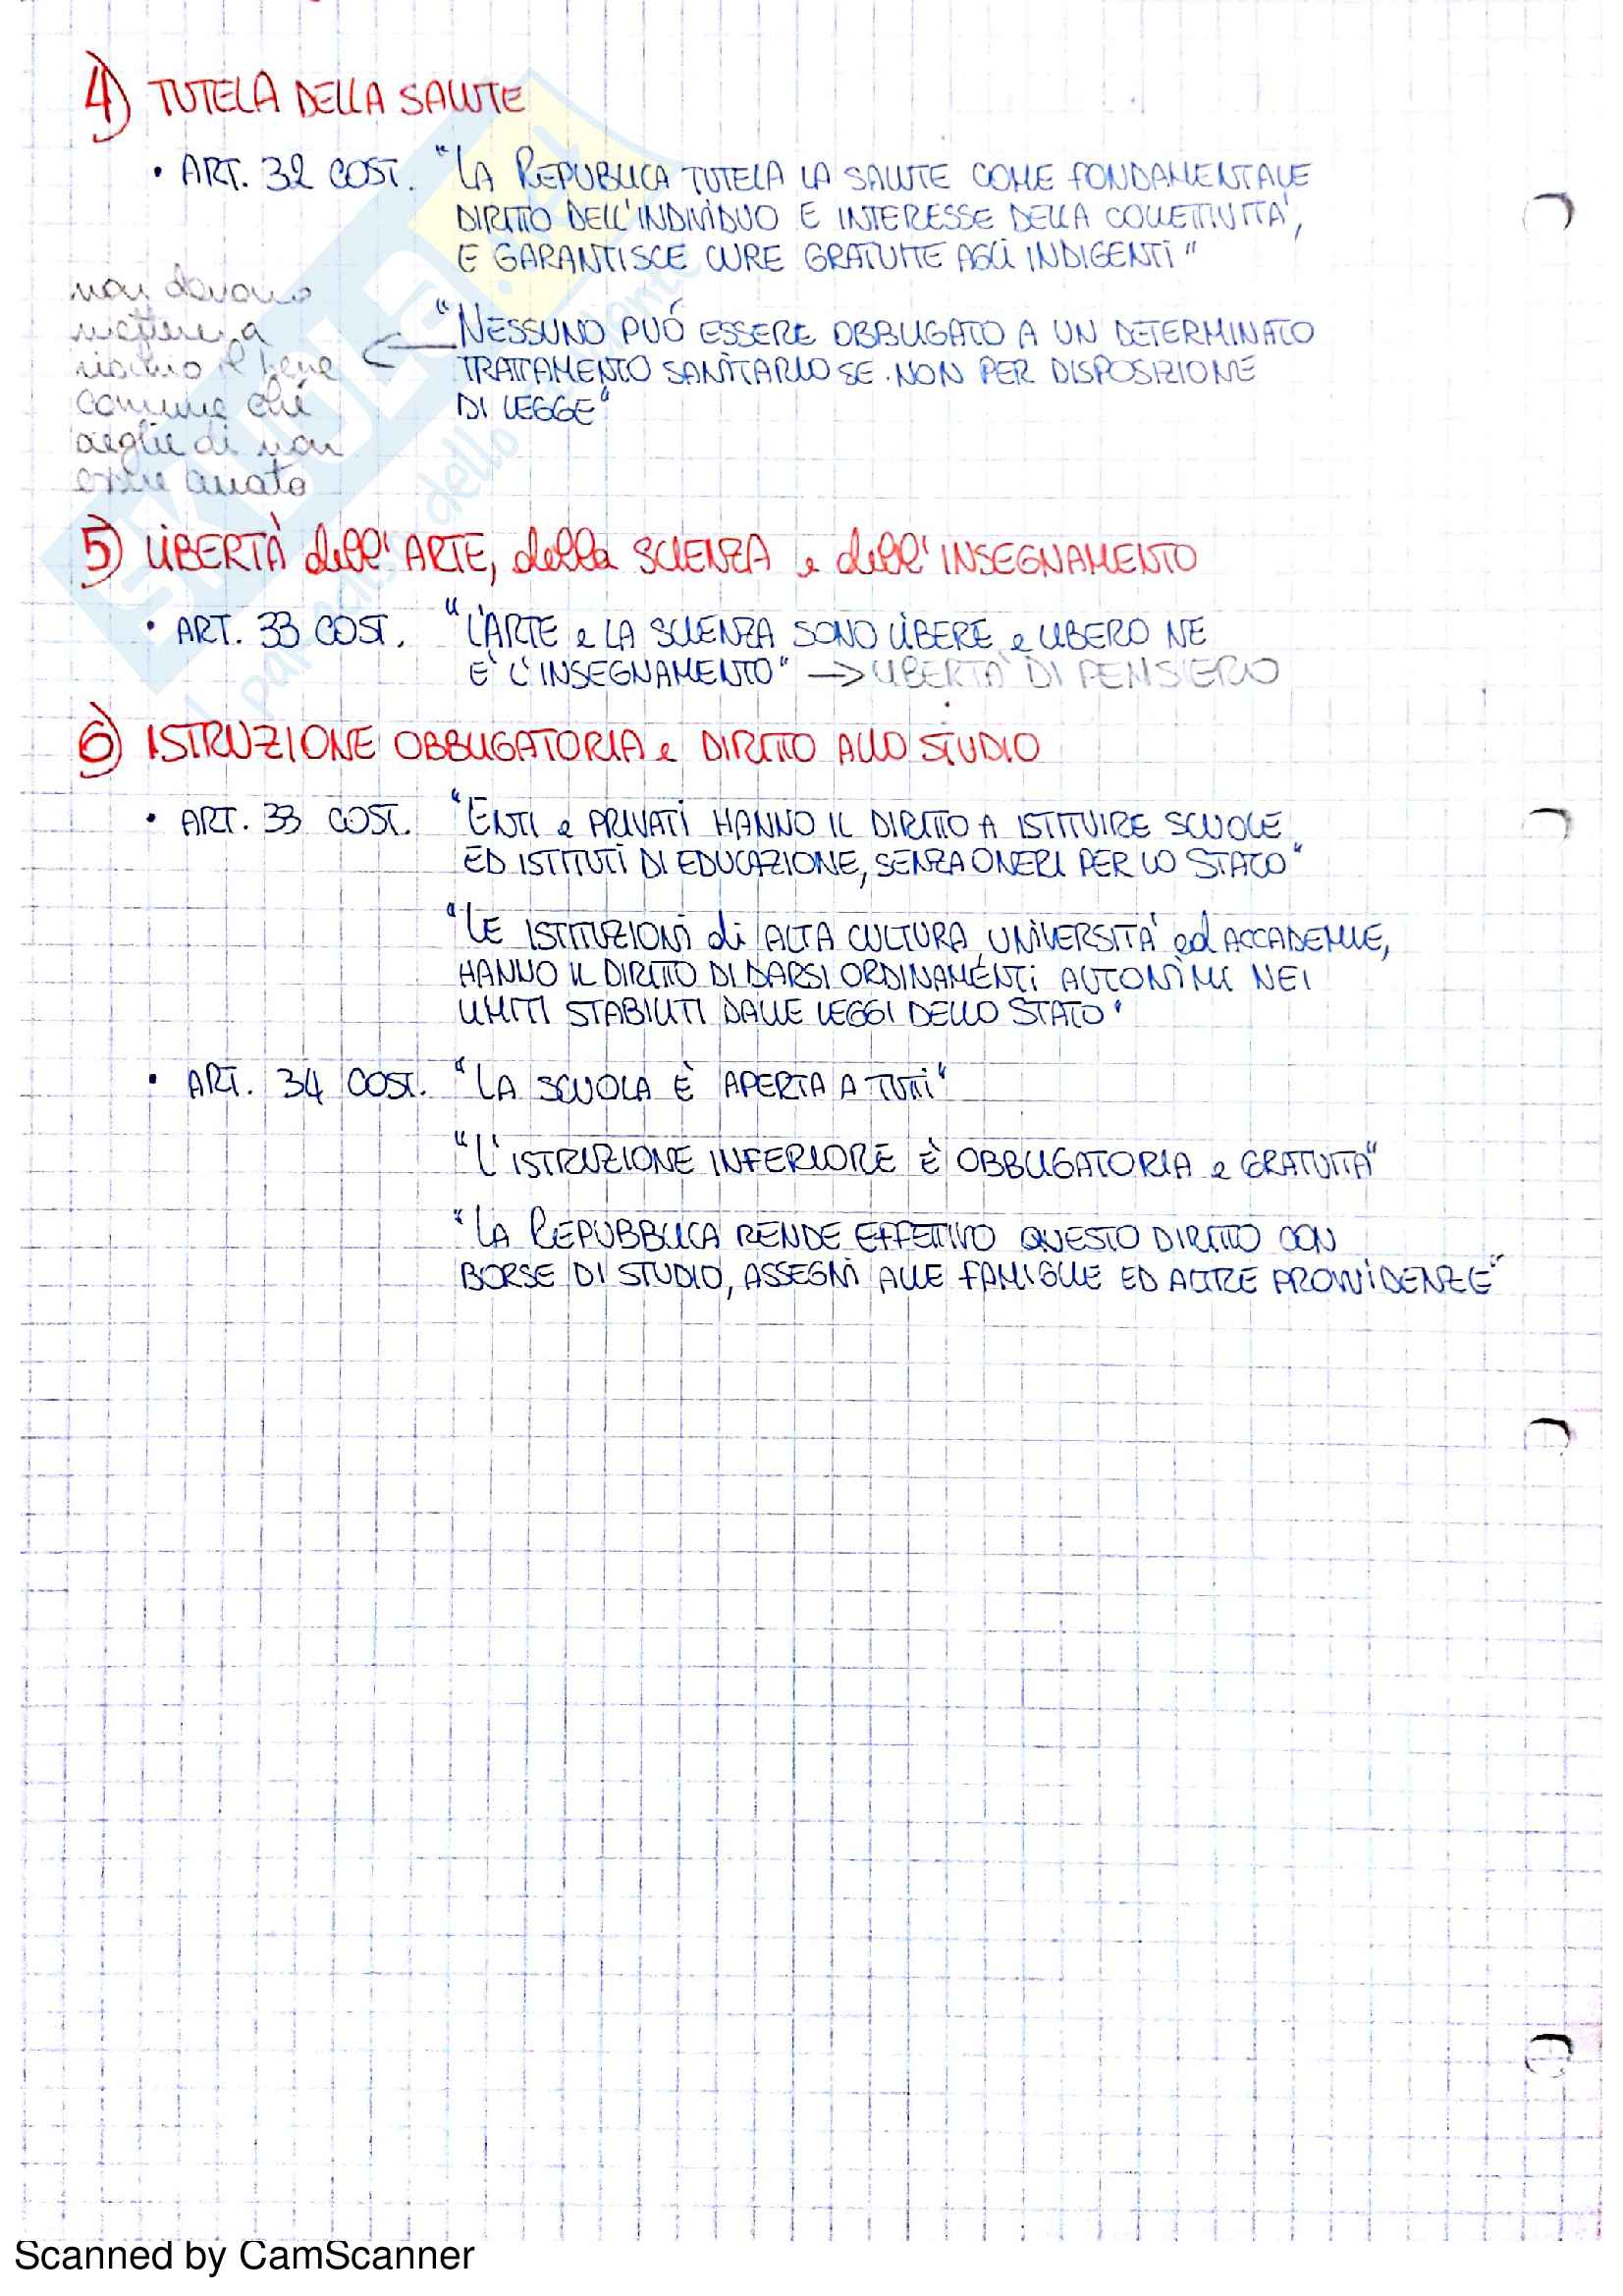 4) TUTELA DELLA SALUTE
• ART. 32 COST. "LA REPUBLICA TUTELA LA SALUTE COME FONDAMENTALE
DIRITTO DELL'INDIVIDUO E INTERESSE DELLA COLLETIVITÀ,
E GARANTISCE CURE GRATUITE AGLI INDIGENTI"
"NESSUNO PUÓ ESSERE OBBLIGATO A UN DETERMINATO
TRATTAMENTO SANITARIO SE NON PER DISPOSIZIONE
DI LEGGE"
non devono
mettere a
rischio il bene
comune chi
sceglie di non
essere curato
5) LIBERTÀ dell'ARTE, della SCIENZA e dell'INSEGNAMENTO
• ART. 33 COST. "L'ARTE e LA SCIENZA SONO LIBERE e LIBERO NE
E' L'INSEGNAMENTO" → LIBERTÀ DI PENSIERO
6) ISTRUZIONE OBBLIGATORIA e DIRITTO ALLO STUDIO
• ART. 33 COST. "ENTI e PRIVATI HANNO IL DIRITTO A ISTITUIRE SCUOLE
ED ISTITUTI DI EDUCAZIONE, SENZA ONERI PER LO STATO"
"LE ISTITUZIONI di ALTA CULTURA, UNIVERSITÀ ed ACCADEMIE,
HANNO IL DIRITTO DI DARSI ORDINAMENTI AUTONIMI NEI
LIMITI STABILITI DALLE LEGGI DELLO STATO"
• ART. 34 COST. "LA SCUOLA È APERTA A TUTTI"
"L'ISTRUZIONE INFERIORE È OBBLIGATORIA e GRATUITA"
"LA REPUBBLICA RENDE EFFETTIVO QUESTO DIRITTO CON
BORSE DI STUDIO, ASSEGNI ALLE FAMIGLIE ED ALTRE PROVVIDENZE"
Scanned by CamScanner